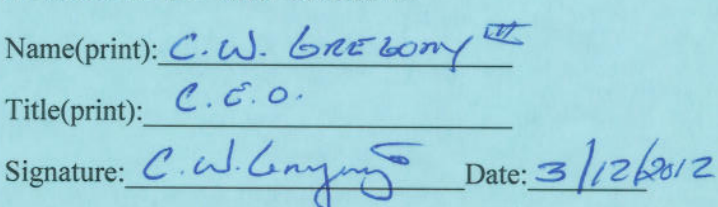 Name(print): C.W. GREGORY III
Title(print): C.E.O.
Signature: C.W. Gregory Date: 3/12/2012